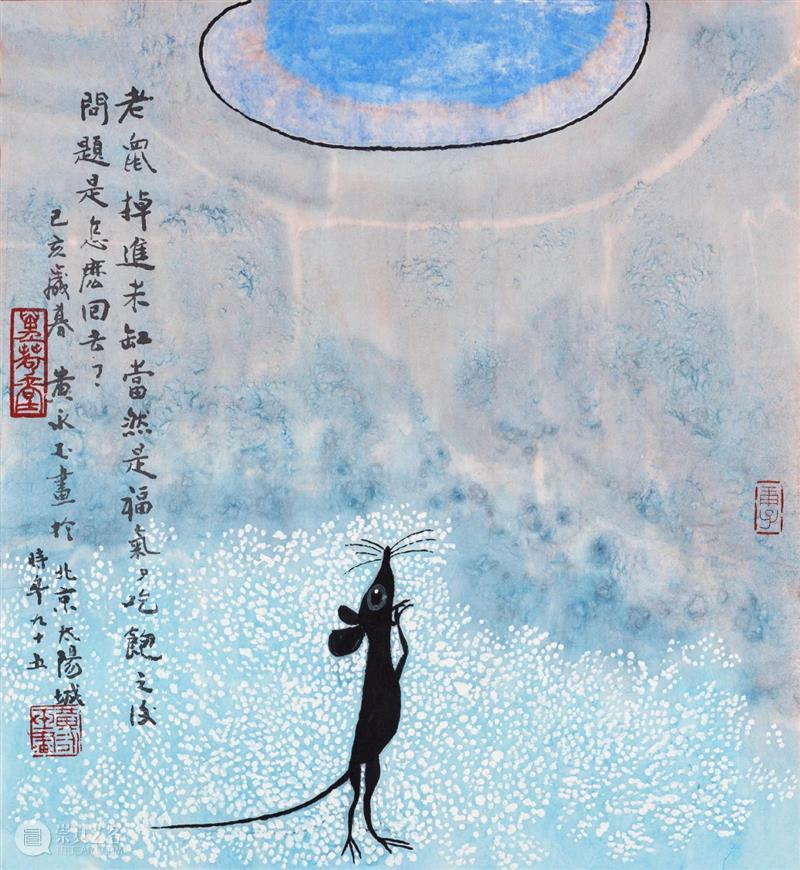 老鼠掉進米缸當然是福氣,吃飽之後
問題是怎麽回去?
己亥歲暮 黃永玉畫於北京太陽城
時年九十五
萬荷堂
庚子
崇真艺客